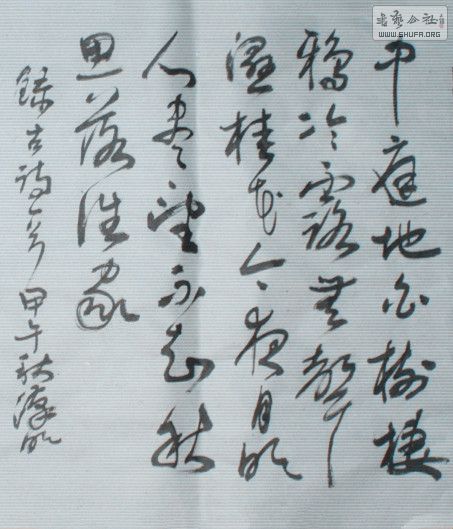 中庭地白樹棲
鴉冷露無聲
濕桂花今夜月明
人盡望不知秋
思落誰家
錄古詩一首甲午秋明
書藝公社
WWW.SHUFA.ORG